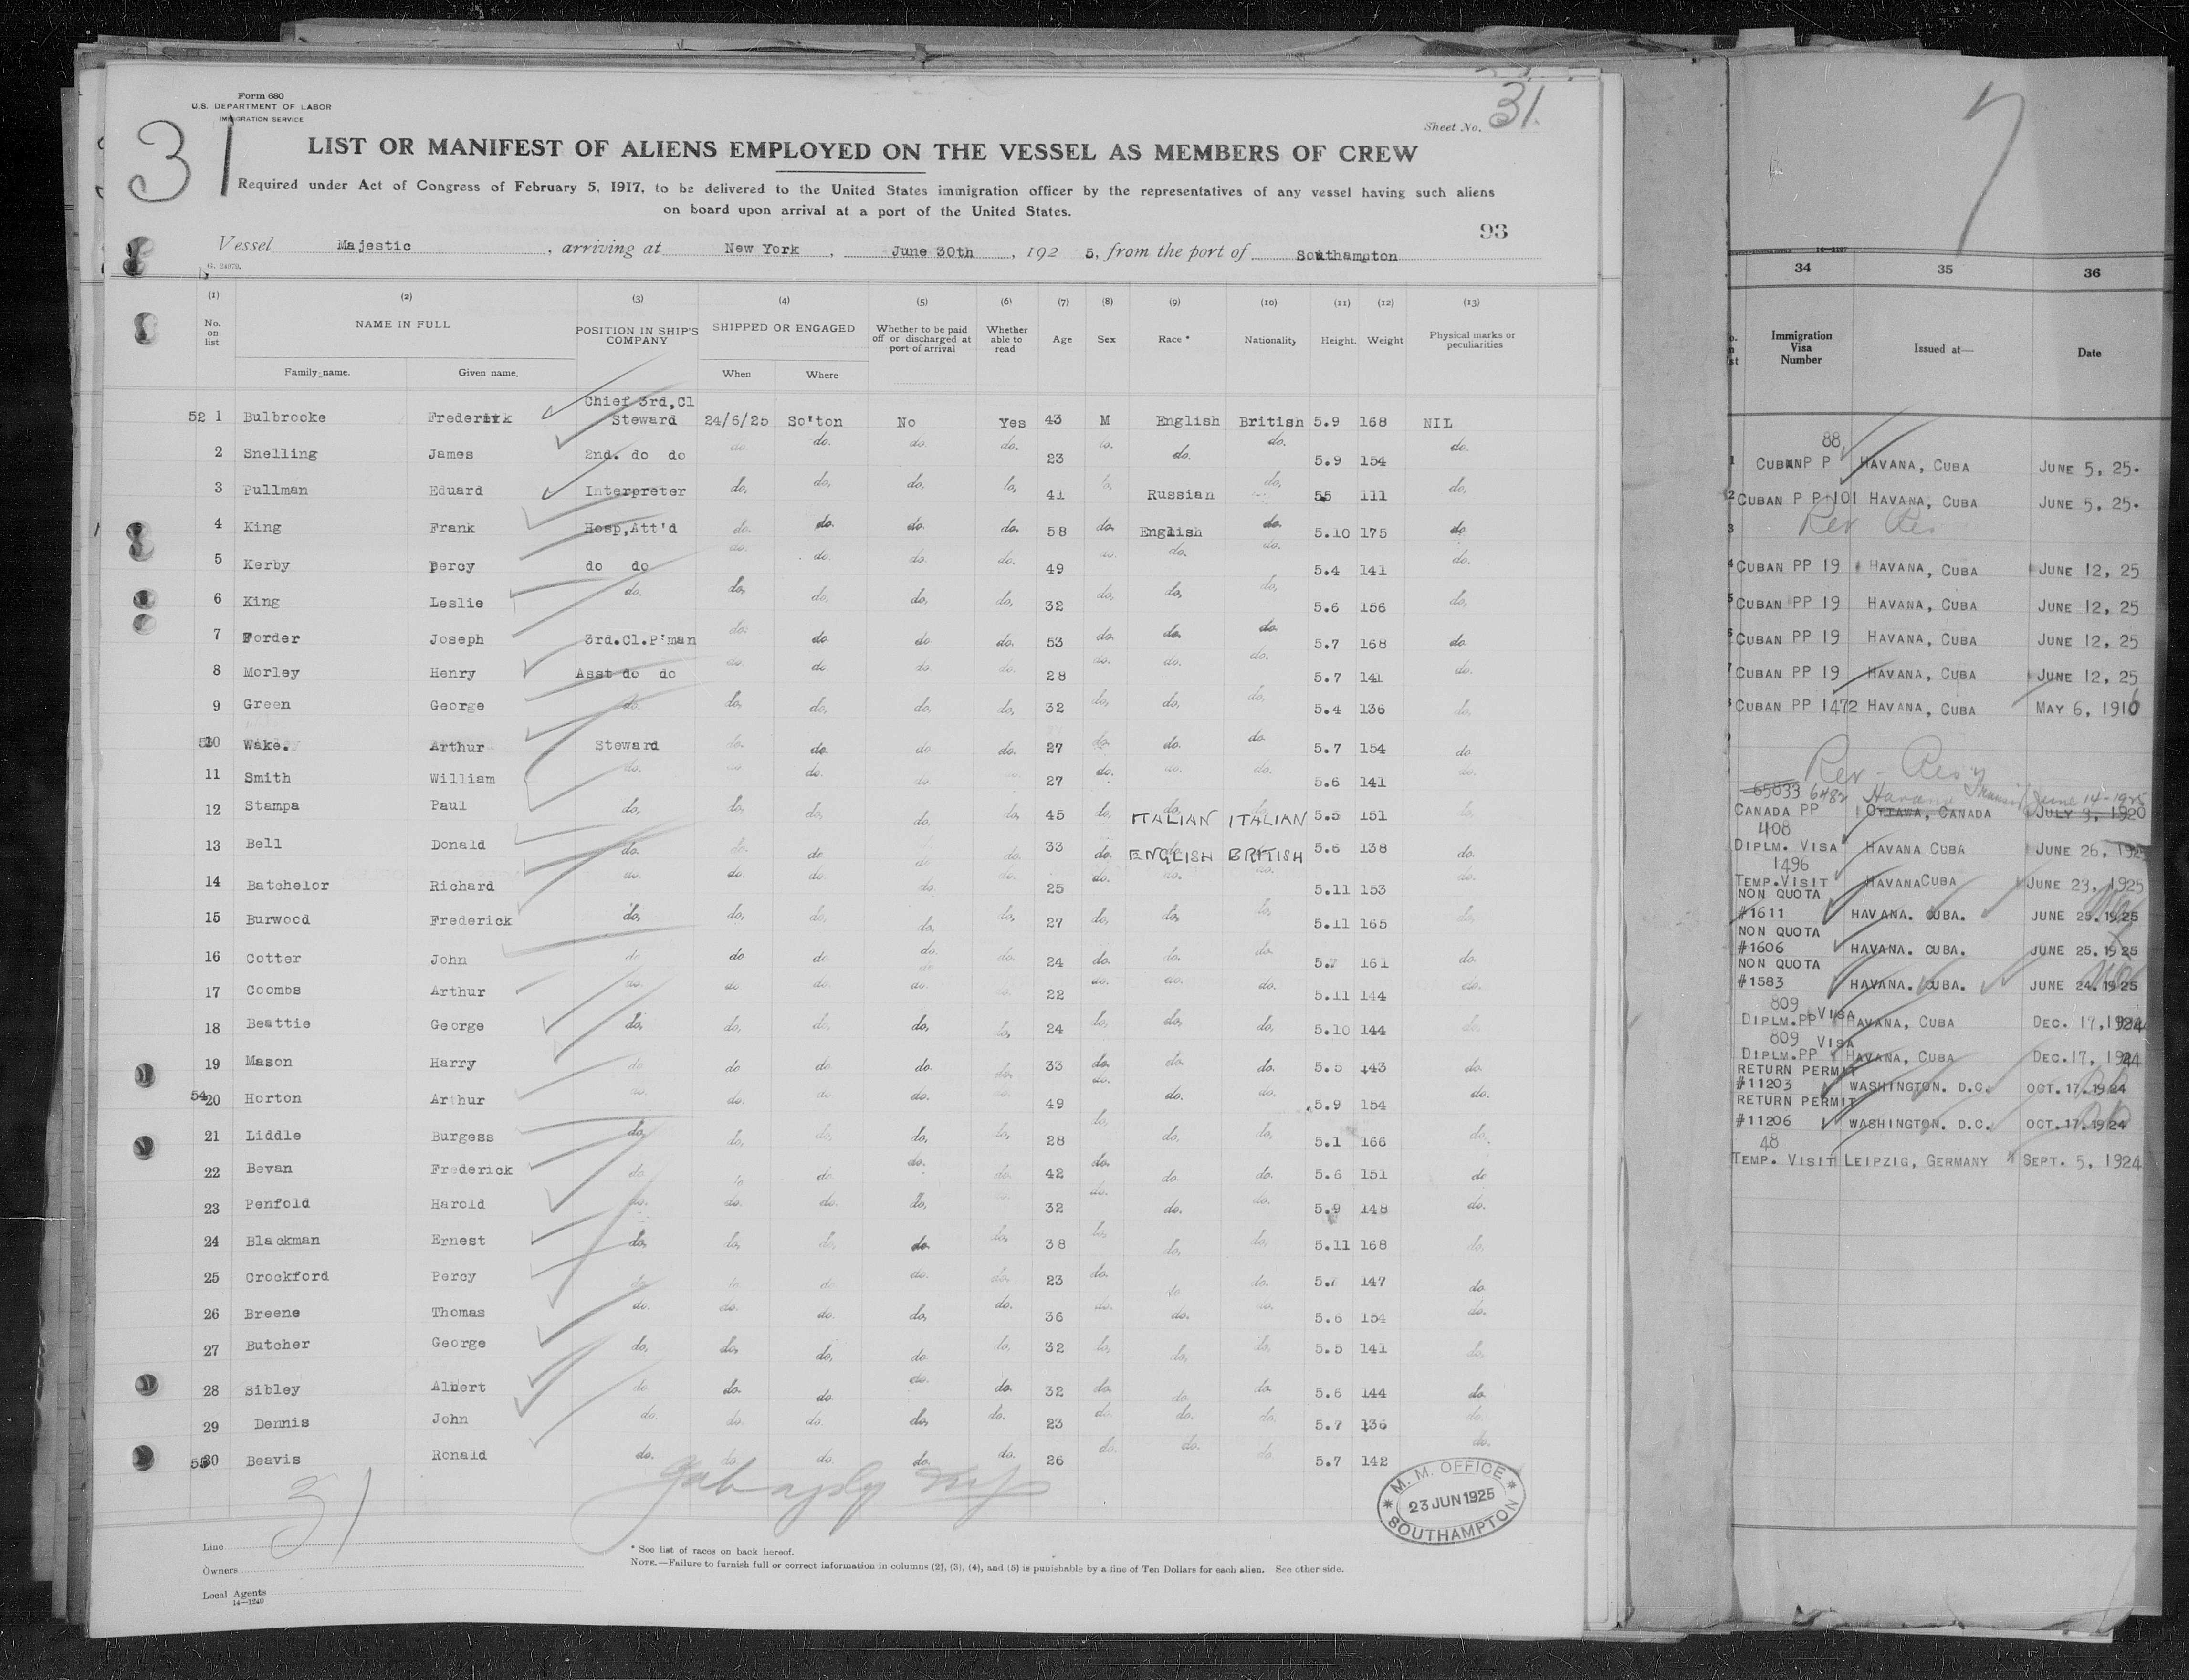 Form 680
U.S. DEPARTMENT OF LABOR
IMMIGRATION SERVICE
31
Sheet No. 31.
LIST OR MANIFEST OF ALIENS EMPLOYED ON THE VESSEL AS MEMBERS OF CREW
Required under Act of Congress of February 5, 1917, to be delivered to the United States immigration officer by the representatives of any vessel having such aliens
on board upon arrival at a port of the United States.
93
Vessel Majestic, arriving at New York, June 30th, 1925, from the port of Southampton
(1) (2) (3) (4) (5) (6) (7) (8) (9) (10) (11) (12) (13)
No. on list NAME IN FULL POSITION IN SHIP'S COMPANY SHIPPED OR ENGAGED Whether to be paid off or discharged at port of arrival Whether able to read Age Sex Race * Nationality Height. Weight Physical marks or peculiarities
Family name. Given name. When Where
52 1 Bulbrooke Frederick Chief 3rd,Cl Steward 24/6/25 So'ton No Yes 43 M English British 5.9 168 NIL
2 Snelling James 2nd. do do do. do. do. do. 23 do. do. do. 5.9 154 do.
3 Pullman Eduard Interpreter do, do, do, do, 41 do, Russian do, 55 111 do,
4 King Frank Hosp,Att'd do. do. do. do. 58 do. English do. 5.10 175 do
5 Kerby Percy do do do. do. do. do. 49 do. do. do. 5.4 141 do.
6 King Leslie do. do, do, do, do, 32 do, do, do, 5.6 156 do,
7 Forder Joseph 3rd.Cl.P'man do. do do do. 53 do. do. do. 5.7 168 do
8 Morley Henry Asst do do do. do. do. do. 28 do. do. do. 5.7 141 do.
9 Green George do. do, do, do, do, 32 do, do, do, 5.4 136 do,
10 Wake. Arthur Steward do. do. do do. 27 do. do. do 5.7 154 do
11 Smith William do. do. do. do. 27 do. do. do. 5.6 141 do.
12 Stampa Paul do, do, do, do, do, 45 do, ITALIAN ITALIAN 5.5 151 do,
13 Bell Donald do. do. do do do. 33 do. ENGLISH BRITISH 5.6 138 do.
14 Batchelor Richard do. do. do. do. do. 25 do. do. do. 5.11 153 do.
15 Burwood Frederick do, do, do, do, do, 27 do, do, do, 5.11 165 do,
16 Cotter John do do do do. do. 24 do. do. do. 5.7 161 do.
17 Coombs Arthur do. do do. do. 22 do. do. do. 5.11 144 do.
18 Beattie George do, do, do, do, do, 24 do, do, do, 5.10 144 do,
19 Mason Harry do do do do do, 33 do. do. do. 5.5 143 do.
54 20 Horton Arthur do. do. do do. do. 49 do. do. do. 5.9 154 do.
21 Liddle Burgess do, do, do, do, do, 28 do, do, do, 5.1 166 do,
22 Bevan Frederick do do do. do. do. 42 do. do. do. 5.6 151 do
23 Penfold Harold do. do. do. do, 32 do. do. do. 5.9 148 do.
24 Blackman Ernest do, do, do, do. do, 38 do, do, do, 5.11 168 do,
25 Crockford Percy do do do do. do. 23 do. do do. 5.7 147 do
26 Breene Thomas do. do. do. do, do. 36 do. do. do. 5.6 154 do.
27 Butcher George do, do, do, do do, 32 do, do, do, 5.5 141 do,
28 Sibley Albert do do. do do. do. 32 do. do. do. 5.6 144 do.
29 Dennis John do. do. do. do, do. 23 do. do. do. 5.7 136 do.
55 30 Beavis Ronald do. do. do. do. do. 26 do. do. do 5.7 142 do.
31
M. M. OFFICE
23 JUN 1925
SOUTHAMPTON
Line
Owners
Local Agents
14—1240
* See list of races on back hereof.
NOTE.—Failure to furnish full or correct information in columns (2), (3), (4), and (5) is punishable by a fine of Ten Dollars for each alien. See other side.
7
34 35 36
Immigration Visa Number Issued at— Date
88
1 CUBAN P P HAVANA, CUBA JUNE 5, 25.
2 CUBAN P P 101 HAVANA, CUBA JUNE 5, 25.
3 Rev Res
4 CUBAN PP 19 HAVANA, CUBA JUNE 12, 25
5 CUBAN PP 19 HAVANA, CUBA JUNE 12, 25
6 CUBAN PP 19 HAVANA, CUBA JUNE 12, 25
7 CUBAN PP 19 HAVANA, CUBA JUNE 12, 25
CUBAN PP 1472 HAVANA, CUBA MAY 6, 1916
Rev - Res
65833 648 Havana June 14-1925
CANADA PP OTTAWA, CANADA JULY 9, 1920
408
DIPLM. VISA HAVANA CUBA JUNE 26, 1925
1496
TEMP. VISIT HAVANA CUBA JUNE 23, 1925
NON QUOTA
#1611 HAVANA. CUBA. JUNE 25. 1925
NON QUOTA
#1606 HAVANA. CUBA. JUNE 25. 1925
NON QUOTA
#1583 HAVANA. CUBA. JUNE 24. 1925
809 VISA
DIPLM.PP HAVANA, CUBA DEC. 17, 1924
809 VISA
DIPLM.PP HAVANA, CUBA DEC. 17, 1924
RETURN PERMIT
#11203 WASHINGTON. D.C. OCT. 17. 1924
RETURN PERMIT
#11206 WASHINGTON. D.C. OCT. 17. 1924
48
TEMP. VISIT LEIPZIG, GERMANY SEPT. 5, 1924